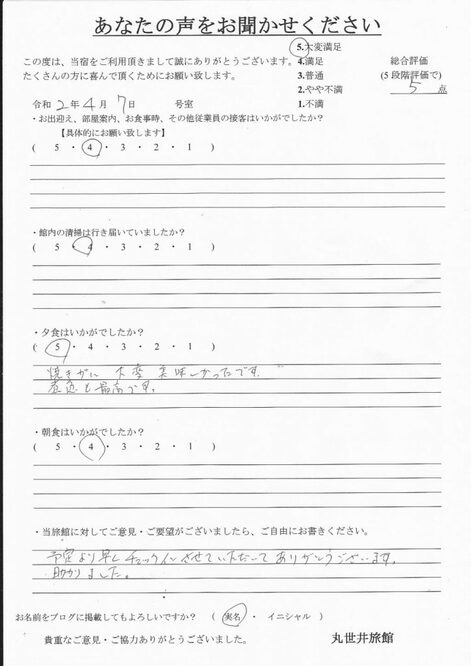 あなたの声をお聞かせください
この度は、当宿をご利用頂きまして誠にありがとうございます。
たくさんの方に喜んで頂くためにお願い致します。
5.大変満足
4.満足
3.普通
2.やや不満
1.不満
総合評価
(5段階評価で)
5 点
令和 2 年 4 月 7 日 号室
・お出迎え、部屋案内、お食事時、その他従業員の接客はいかがでしたか？
【具体的にお願い致します】
( 5 ・ 4 ・ 3 ・ 2 ・ 1 )
・館内の清掃は行き届いていましたか？
( 5 ・ 4 ・ 3 ・ 2 ・ 1 )
・夕食はいかがでしたか？
( 5 ・ 4 ・ 3 ・ 2 ・ 1 )
焼きがに 大変 美味しかったです。
煮魚も最高です。
・朝食はいかがでしたか？
( 5 ・ 4 ・ 3 ・ 2 ・ 1 )
・当旅館に対してご意見・ご要望がございましたら、ご自由にお書きください。
予定より早くチェックインさせていただいてありがとうございます。
助かりました。
お名前をブログに掲載してもよろしいですか？ ( 実名 ・ イニシャル )
貴重なご意見・ご協力ありがとうございました。
丸世井旅館